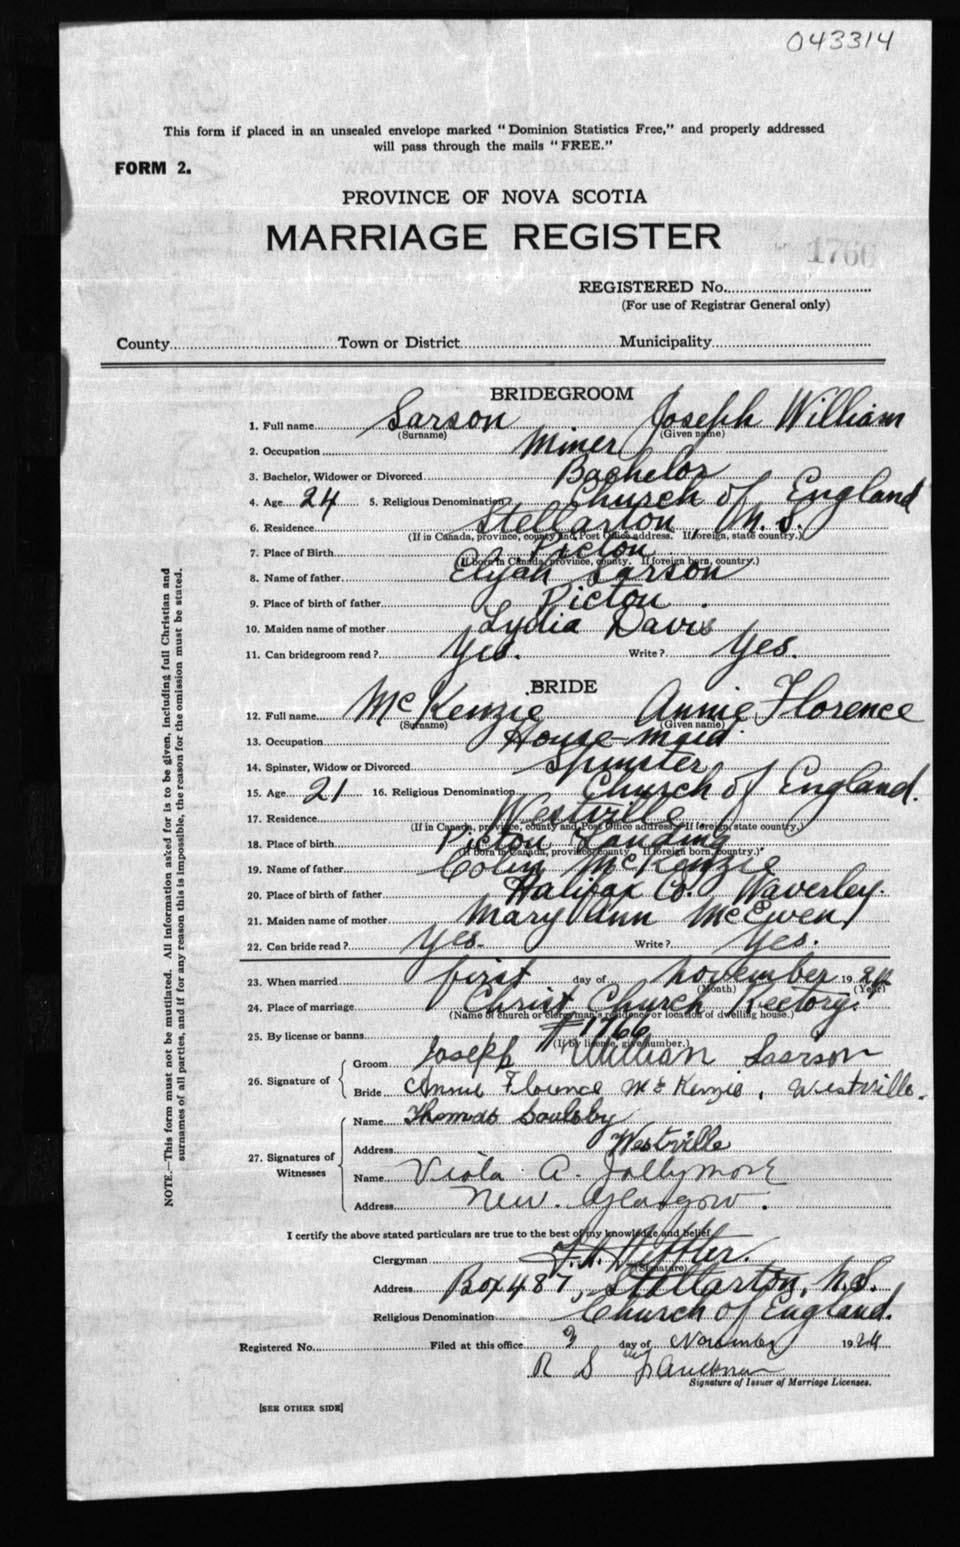 043314
This form if placed in an unsealed envelope marked "Dominion Statistics Free," and properly addressed
will pass through the mails "FREE."
FORM 2.
PROVINCE OF NOVA SCOTIA
MARRIAGE REGISTER
1766
REGISTERED No.
(For use of Registrar General only)
County Town or District Municipality
BRIDEGROOM
1. Full name Sarson Joseph William
(Surname) (Given name)
2. Occupation Miner
3. Bachelor, Widower or Divorced Bachelor
4. Age 24 5. Religious Denomination Church of England
6. Residence Stellarton, N.S.
(If in Canada, province, county and Post Office address. If foreign, state country.)
7. Place of Birth Picton
(If born in Canada, province, county. If foreign born, country.)
8. Name of father Elijah Sarson
9. Place of birth of father Picton.
10. Maiden name of mother Lydia Davis
11. Can bridegroom read? Yes. Write? Yes.
BRIDE
12. Full name McKenzie Annie Florence
(Surname) (Given name)
13. Occupation House-maid
14. Spinster, Widow or Divorced Spinster
15. Age 21 16. Religious Denomination Church of England.
17. Residence Westville
(If in Canada, province, county and Post Office address. If foreign, state country.)
18. Place of birth Picton Landing
(If born in Canada, province, county. If foreign born, country.)
19. Name of father Colin McKenzie
20. Place of birth of father Halifax Co. Waverley.
21. Maiden name of mother Mary Ann McEwen
22. Can bride read? Yes. Write? Yes.
23. When married first day of November 1924
(Month) (Year)
24. Place of marriage Christ Church Rectory.
(Name of church or clergyman's residence or location of dwelling house.)
25. By license or banns #1766
(If by license, give number.)
26. Signature of
Groom Joseph William Saarson
Bride Annie Florence McKenzie, Westville.
27. Signatures of Witnesses
Name Thomas Soulsby
Address Westville
Name Viola A. Jollymore
Address New Glasgow.
I certify the above stated particulars are true to the best of my knowledge and belief
Clergyman
(Signature)
Address Box 487, Stellarton, N.S.
Religious Denomination Church of England.
Registered No. Filed at this office 3 day of November 1924
R S Faulkner
Signature of Issuer of Marriage Licenses.
[SEE OTHER SIDE]
NOTE.—This form must not be mutilated. All information asked for is to be given, including full Christian and
surnames of all parties, and if for any reason this is impossible, the reason for the omission must be stated.